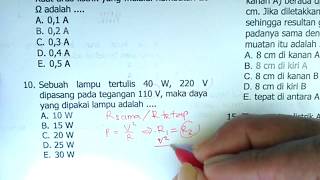 Ω adalah ....
A. 0,1 A
B. 0,2 A
C. 0,3 A
D. 0,4 A
E. 0,5 A
10. Sebuah lampu tertulis 40 W, 220 V
dipasang pada tegangan 110 V, maka daya
yang dipakai lampu adalah ....
A. 10 W
B. 15 W
C. 20 W
D. 25 W
E. 30 W
R sama / R tetap
P = V²/R ⇒ R₁ = R₂
V²
cm. Jika diletakkan
sehingga resultan
padanya sama den
muatan itu adalah
A. 8 cm di kanan A
B. 8 cm di kanan
C. 8 cm di kiri A
D. 8 cm di kiri B
E. tepat di antara A